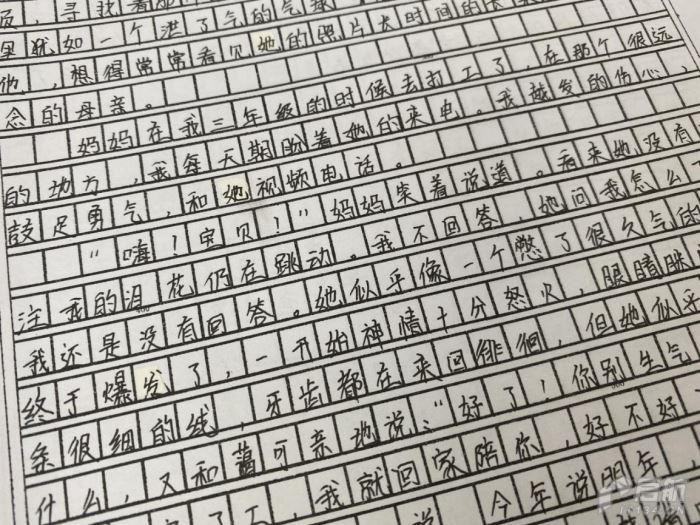 员，寻找着那
里犹如一个泄了气的气球
伤，想得常常看见她的照片长时间的
念的母亲。
妈妈在我三年级的时候去打工了，在那个很远
的地方，我每天期盼着她的来电。我越发的伤心，
鼓足勇气，和她视频电话。
“嗨！宝贝！”妈妈笑着说道。看来她没有
注我的泪花仍在跳动。我不回答，她问我怎么
我还是没有回答。她似乎像一个憋了很久气的
终于爆发了，一开始神情十分怒火，眼睛眯
条很细的线，牙齿都在来回徘徊，但她似
什么，又和蔼可亲地说：“好了！你别生气
了工，我就回家陪你，好不好
说，今年说明年，
启航
lc134.com